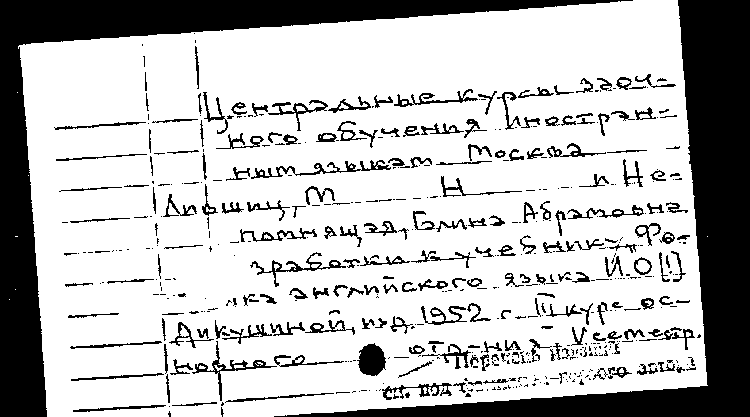 Центральные курсы заоч-
ного обучения иностран-
ным языкам. Москва
Лившиц, М Н и Не-
помнящая, Галина Абрамовна
зработки к учебнику „Фо-
ка английского языка И.О[!]
Дикушиной, изд. 1952 г. III курс ос-
новного V семестр.
Перечень
см. под первого автора